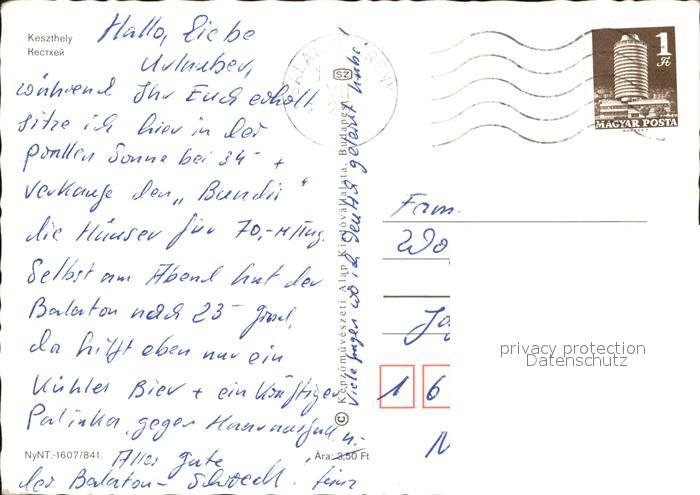 Keszthely
Кестхей
Hallo, liebe
Urlauber,
während Ihr Euch erholt,
sitze ich hier in der
prallen Sonne bei 34° +
verkaufe den „Bundis"
die Häuser für 70,-M/Tag.
Selbst am Abend hat der
Balaton noch 23° Grad,
da hilft eben nur ein
kühles Bier + ein kräftiger
Palinka gegen Haarausfall
Alles Gute
der Balaton-
NyNT.-1607/841.
Ára: 3,50 Ft
© Képzőművészeti Alap Kiadóvállalata, Budapest
Viele fragen wo ich Deutsch gelernt habe!
SZ
1
Ft
MAGYAR POSTA
Fam.
1 6
privacy protection
Datenschutz